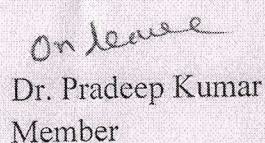 On leave
Dr. Pradeep Kumar
Member